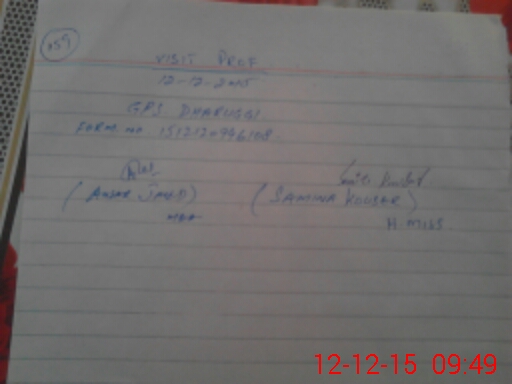 VISIT PROF
12-12-2015
GPS DHARUGGI
FORM. no. 1512120946108
(ANSAR JAVED) (SAMINA KOUSAR)
MEA H. MISS
12-12-15 09:49